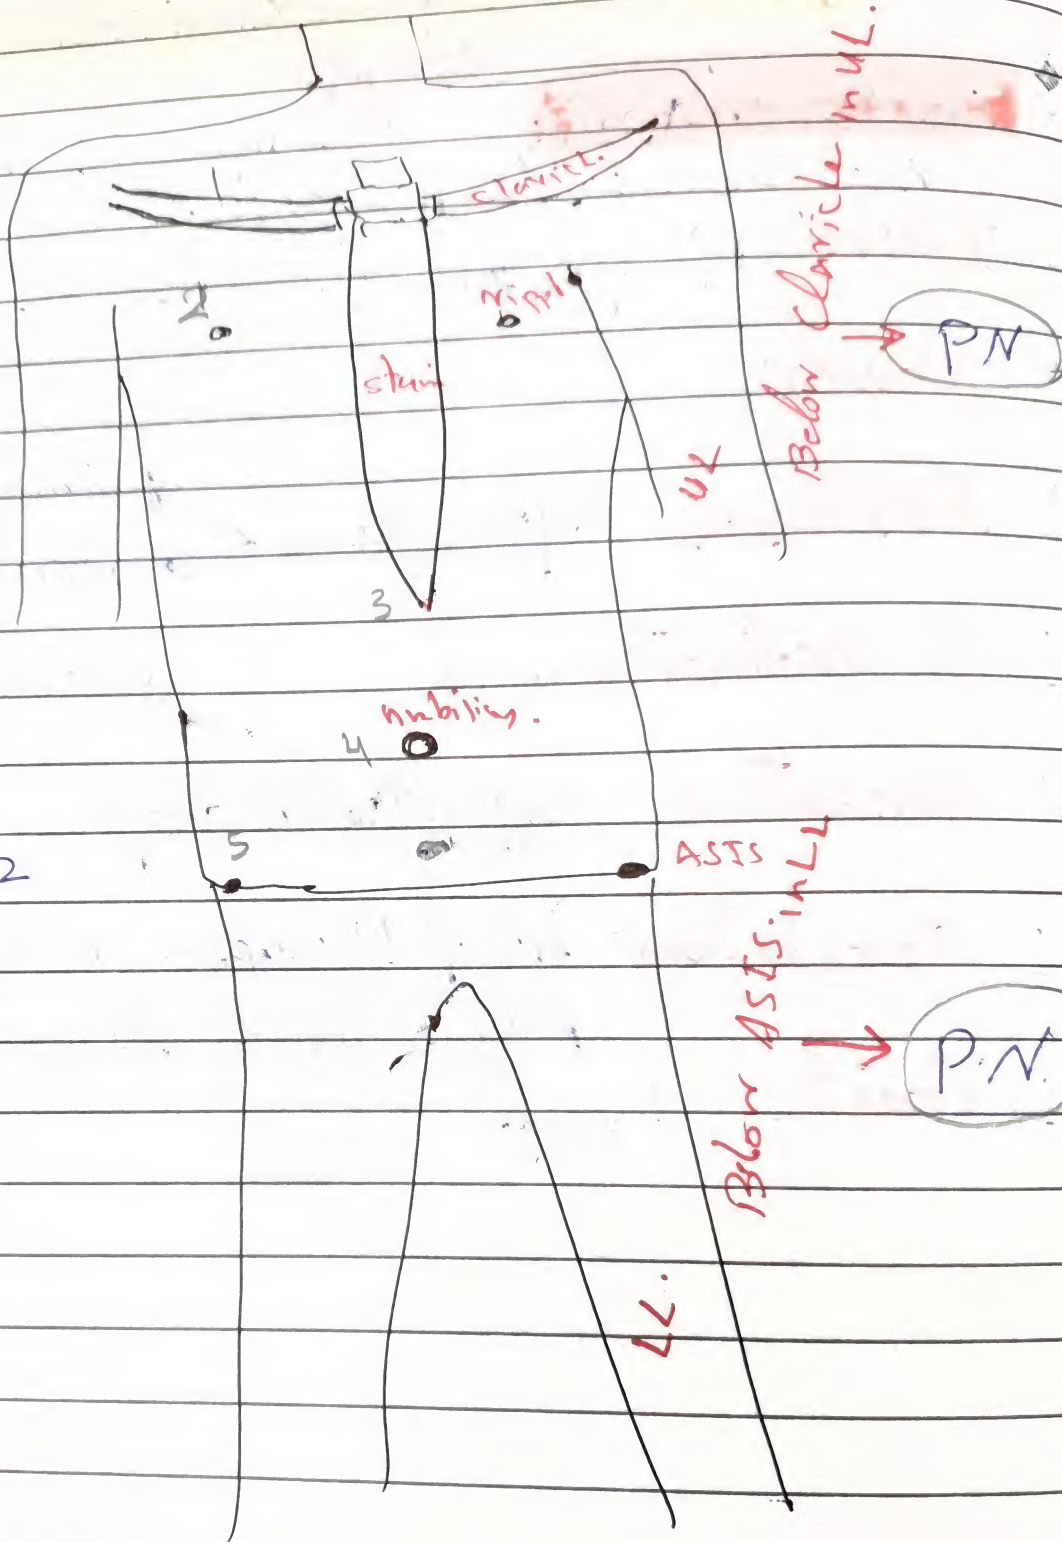 1
clavicl.
2
nippl
stun
UL
Below Clavicle in UL.
→ PN
3
umbilicus.
4
5
ASIS
2
Below ASIS in LL
→ P.N.
LL.